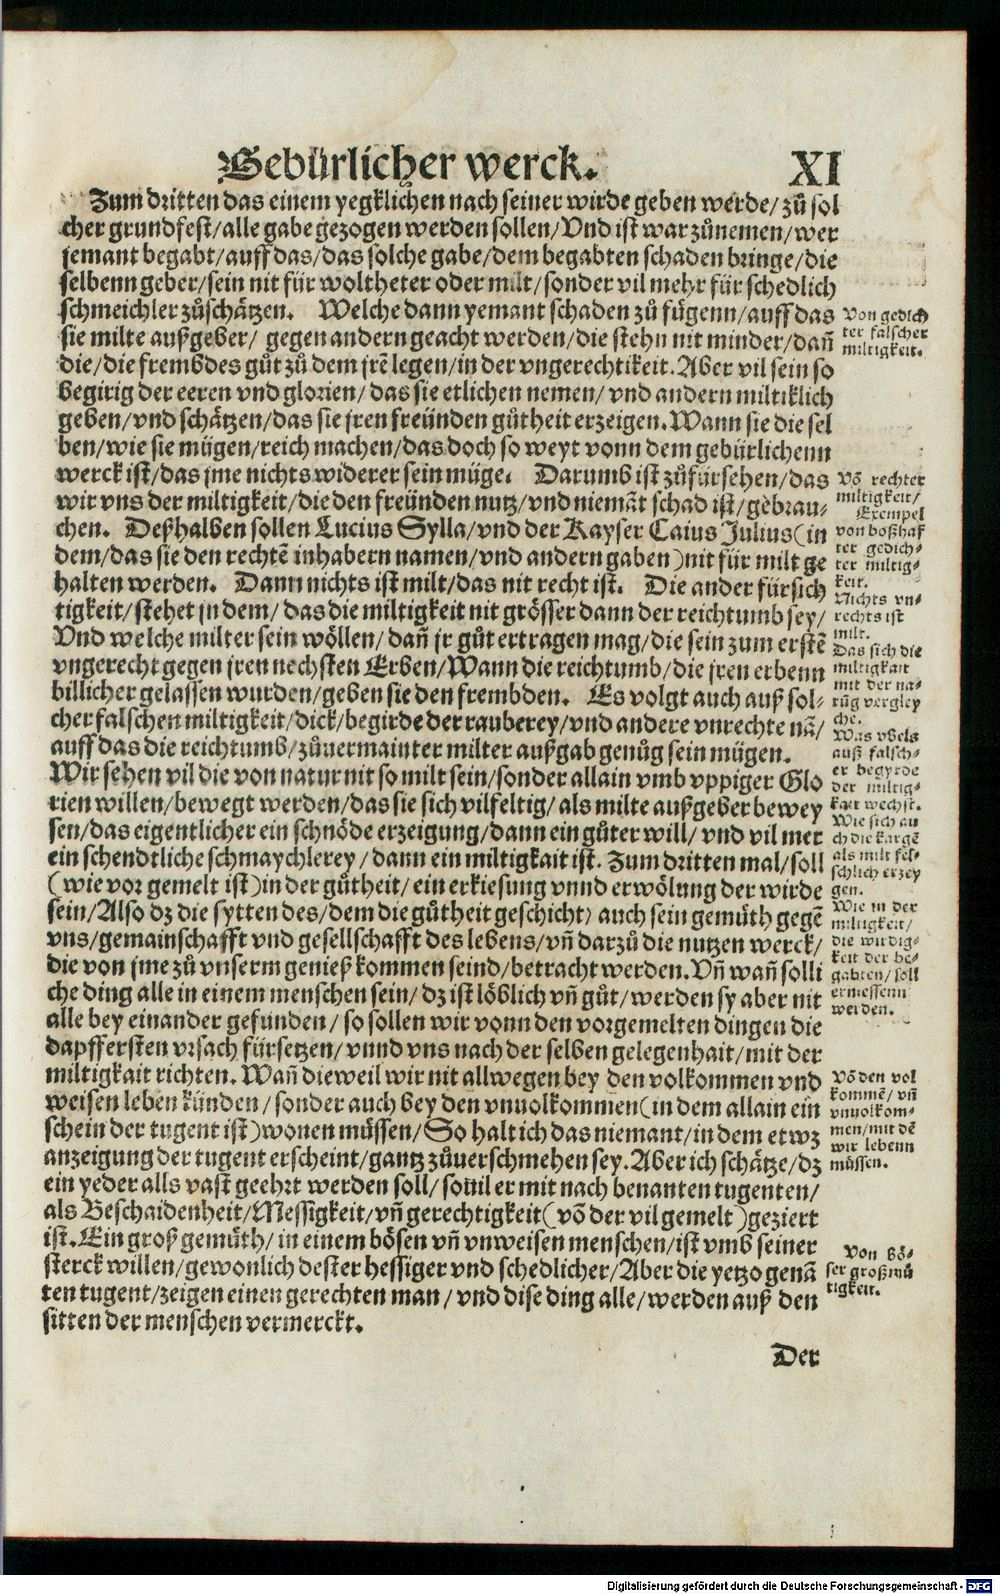 Gebürlicher werck. XI
Zum dritten das einem yegklichen nach seiner wirde geben werde/ zů sol
cher grundfest/alle gabe gezogen werden sollen/Vnd ist war zůnemen/wer
jemant begabt/auff das/das solche gabe/dem begabten schaden bringe/die
selbenn geber/sein nit für woltheter oder milt/sonder vil mehr für schedlich
schmeichler zůschätzen. Welche dann yemant schaden zů fügenn/auff das
sie milte außgeber/ gegen andern geacht werden/die stehn nit minder/dañ
die/die frembdes gůt zů dem jrē legen/in der vngerechtikeit. Aber vil sein so
begirig der eeren vnd glorien/das sie etlichen nemen/vnd andern miltiklich
geben/vnd schätzen/das sie jren freünden gůtheit erzeigen. Wann sie die sel
ben/wie sie mügen/reich machen/das doch so weyt vonn dem gebürlichenn
werck ist/das jme nichts widerer sein müge. Darumb ist zůfürsehen/das
wir vns der miltigkeit/die den freünden nutz/vnd niemāt schad ist/gebrau-
chen. Deßhalben sollen Lucius Sylla/vnd der Kayser Caius Julius(in
dem/das sie den rechtē inhabern namen/vnd andern gaben)nit für milt ge
halten werden. Dann nichts ist milt/das nit recht ist. Die ander fürsich
tigkeit/stehet jn dem/ das die miltigkeit nit grösser dann der reichtumb sey/
Vnd welche milter sein wöllen/dañ jr gůt ertragen mag/die sein zum erstē
vngerecht gegen jren nechsten Erben/Wann die reichtumb/die jren erbenn
billicher gelassen wurden/geben sie den frembden. Es volgt auch auß sol-
cher falschen miltigkeit/dick/begirde der rauberey/vnd andere vnrechte nā/
auff das die reichtumb/zůuermainter milter außgab genůg sein mügen.
Wir sehen vil die von natur nit so milt sein/sonder allain vmb vppiger Glo
rien willen/bewegt werden/das sie sich vilfeltig/als milte außgeber bewey
sen/das eigentlicher ein schnöde erzeigung/dann ein gůter will/ vnd vil mer
ein schendtliche schmaychlerey/dann ein miltigkait ist. Zum dritten mal/soll
(wie vor gemelt ist)in der gůtheit/ein erkiesung vnnd erwölung der wirde
sein/Also dz die sytten des/dem die gůtheit geschicht/ auch sein gemüth gegē
vns/gemainschafft vnd gesellschafft des lebens/vñ darzů die nutzen werck/
die von jme zů vnserm genieß kommen seind/betracht werden. Vñ wañ solli
che ding alle in einem menschen sein/dz ist löblich vñ gůt/werden sy aber nit
alle bey einander gefunden/so sollen wir vonn den vorgemelten dingen die
dapffersten vrsach fürsetzen/vnnd vns nach der selben gelegenhait/mit der
miltigkait richten. Wañ dieweil wir nit allwegen bey den volkommen vnd
weisen leben künden/sonder auch bey den vnuolkommen(in dem allain ein
schein der tugent ist)wonen müssen/So halt ich das niemant/in dem etwz
anzeigung der tugent erscheint/gantz zůuerschmehen sey. Aber ich schätze/dz
ein yeder alls vast geehrt werden soll/souil er mit nach benanten tugenten/
als Beschaidenheit/Messigkeit/vñ gerechtigkeit(vō der vil gemelt)geziert
ist. Ein groß gemüth/in einem bösen vñ vnweisen menschen/ist vmb seiner
sterck willen/gewonlich dester hessiger vnd schedlicher/Aber die yetzo genā
ten tugent/zeigen einen gerechten man/vnd dise ding alle/werden auß den
sitten der menschen vermerckt.
Der
Von gedich
ter falscher
miltigkeit.
Vō rechter
miltigkeit/
Exempel
von boßhaf
ter gedich-
ter miltig-
keit.
Nichts vn-
rechts ist
milt.
Das sich die
miltigkait
mit der na-
rūg vergley
che.
Was vbels
auß falsch-
er begyrde
der miltig-
kait wechst.
Wie sich au
ch die kargē
als milt fel-
schlich erzey
gen.
Wie in der
miltigkeit/
die wirdig-
keit der be-
gabten/soll
ermessenn
werden.
Vō den vol
kommē/vñ
vnuolkom-
men/mit dē
wir lebenn
müssen.
Von Bö-
ser großmü
tigkeit.
Digitalisierung gefördert durch die Deutsche Forschungsgemeinschaft - DFG